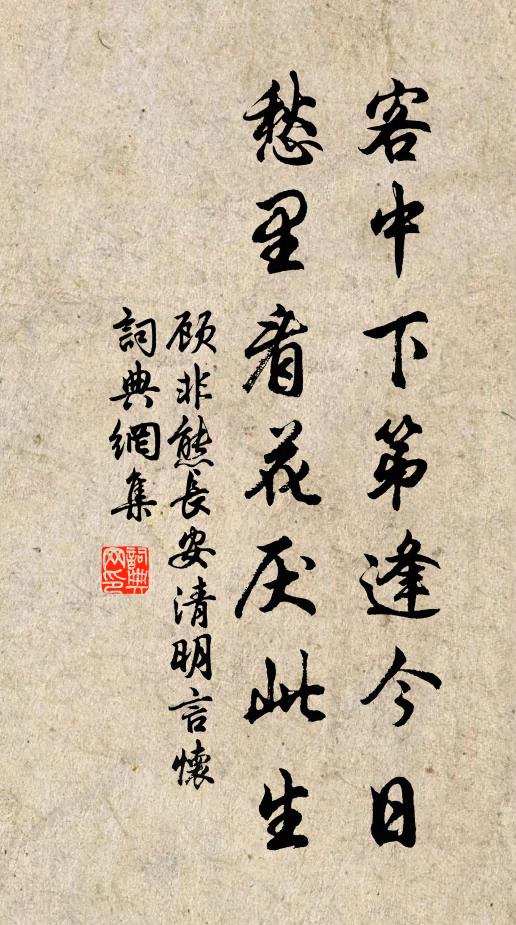 客中下第逢今日
愁里看花厌此生
顾非熊长安清明言懷
詞典網集
詞典网印